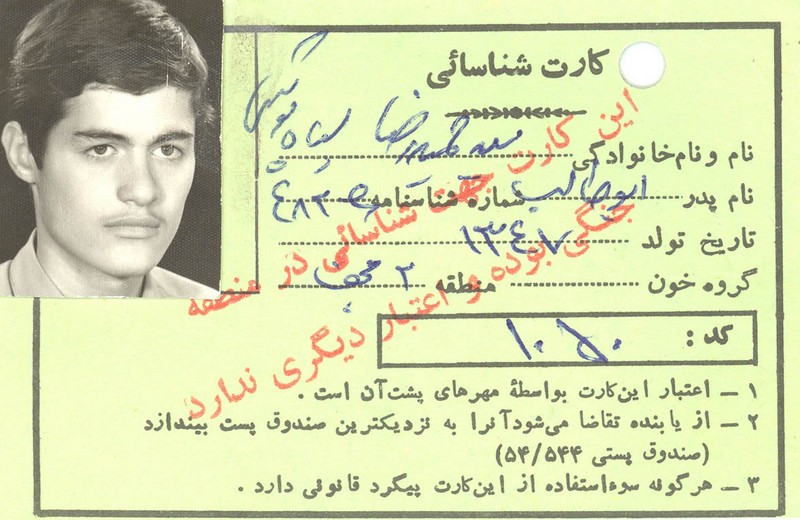 کارت شناسائی
نام و نام‌خانوادگی سید حمیدرضا سیاه‌پوش
نام پدر ابوطالب شماره شناسنامه ۴۸۳
تاریخ تولد ۱۳۴۷
گروه خون منطقه ۲
کد: ۱۰۱۵۰
این کارت جهت شناسائی در منطقه
جنگی بوده و اعتبار دیگری ندارد
۱ــ اعتبار این‌کارت بواسطهٔ مهرهای پشت‌آن است .
۲ــ از یابنده تقاضا می‌شودآنرا به نزدیکترین صندوق پست بیندازد
(صندوق پستی ۵۴/۵۴۴)
۳ــ هرگونه سوءاستفاده از این‌کارت پیگرد قانونی دارد .